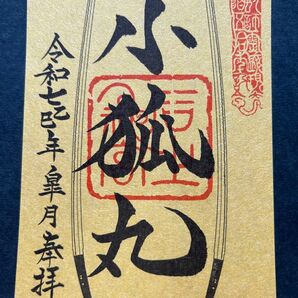 小狐丸
令和七乙巳年皐月奉拝